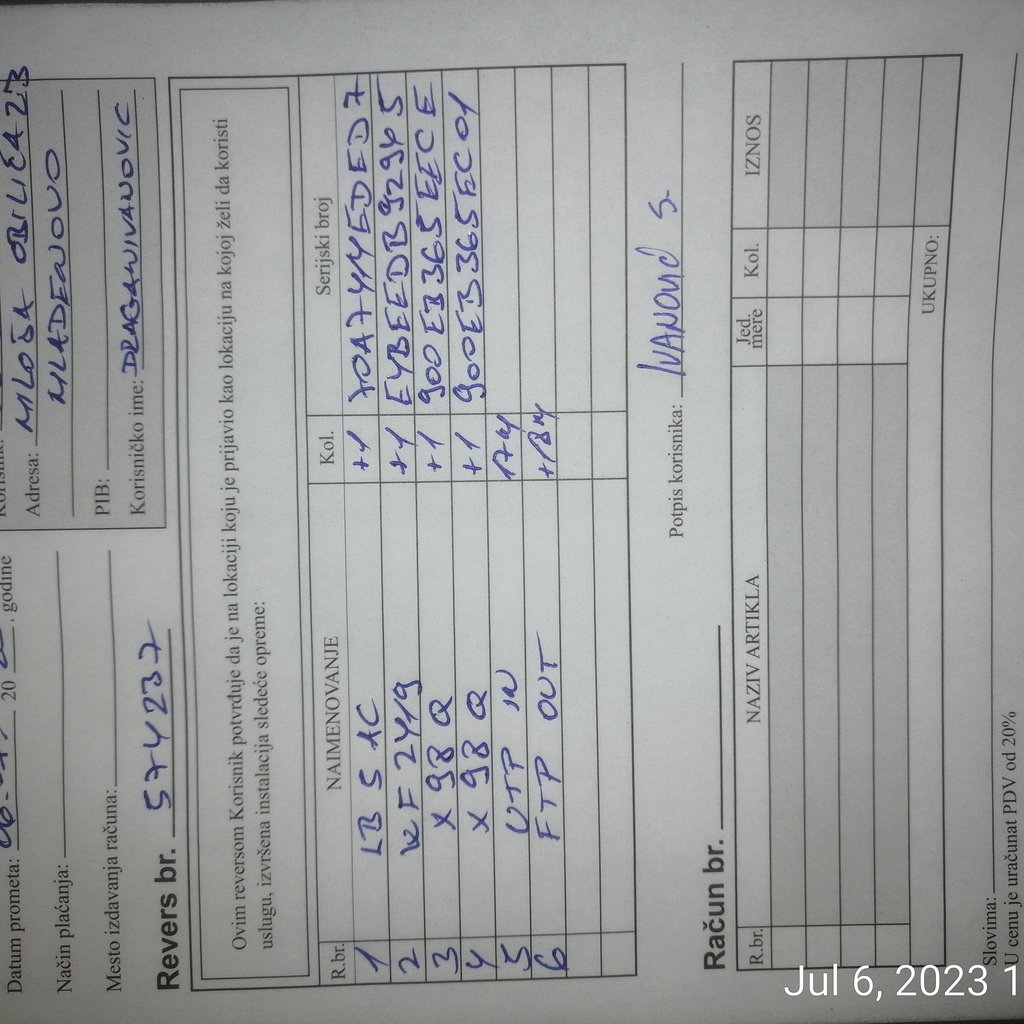 Datum prometa: 20 . godine
Adresa: MILOŠA OBILIĆA 23
MLADENOVO
Način plaćanja:
PIB:
Mesto izdavanja računa:
Korisničko ime: DRAGANIVANOVIC
Revers br. 574237
Ovim reversom Korisnik potvrđuje da je na lokaciji koju je prijavio kao lokaciju na kojoj želi da koristi
uslugu, izvršena instalacija sledeće opreme:
R.br. NAIMENOVANJE Kol. Serijski broj
1 LB 5 AC +1
2 WF 2419 +1 EYBEEDB92945
3 X 98 Q +1 900EB365EECE
4 X 98 Q +1 900EB365EC01
5 UTP IN 17m
6 FTP OUT +18m
Potpis korisnika: IVANOVIĆ S.
Račun br.
R.br. NAZIV ARTIKLA Jed. mere Kol. IZNOS
UKUPNO:
Slovima:
U cenu je uračunat PDV od 20%
Jul 6, 2023 1